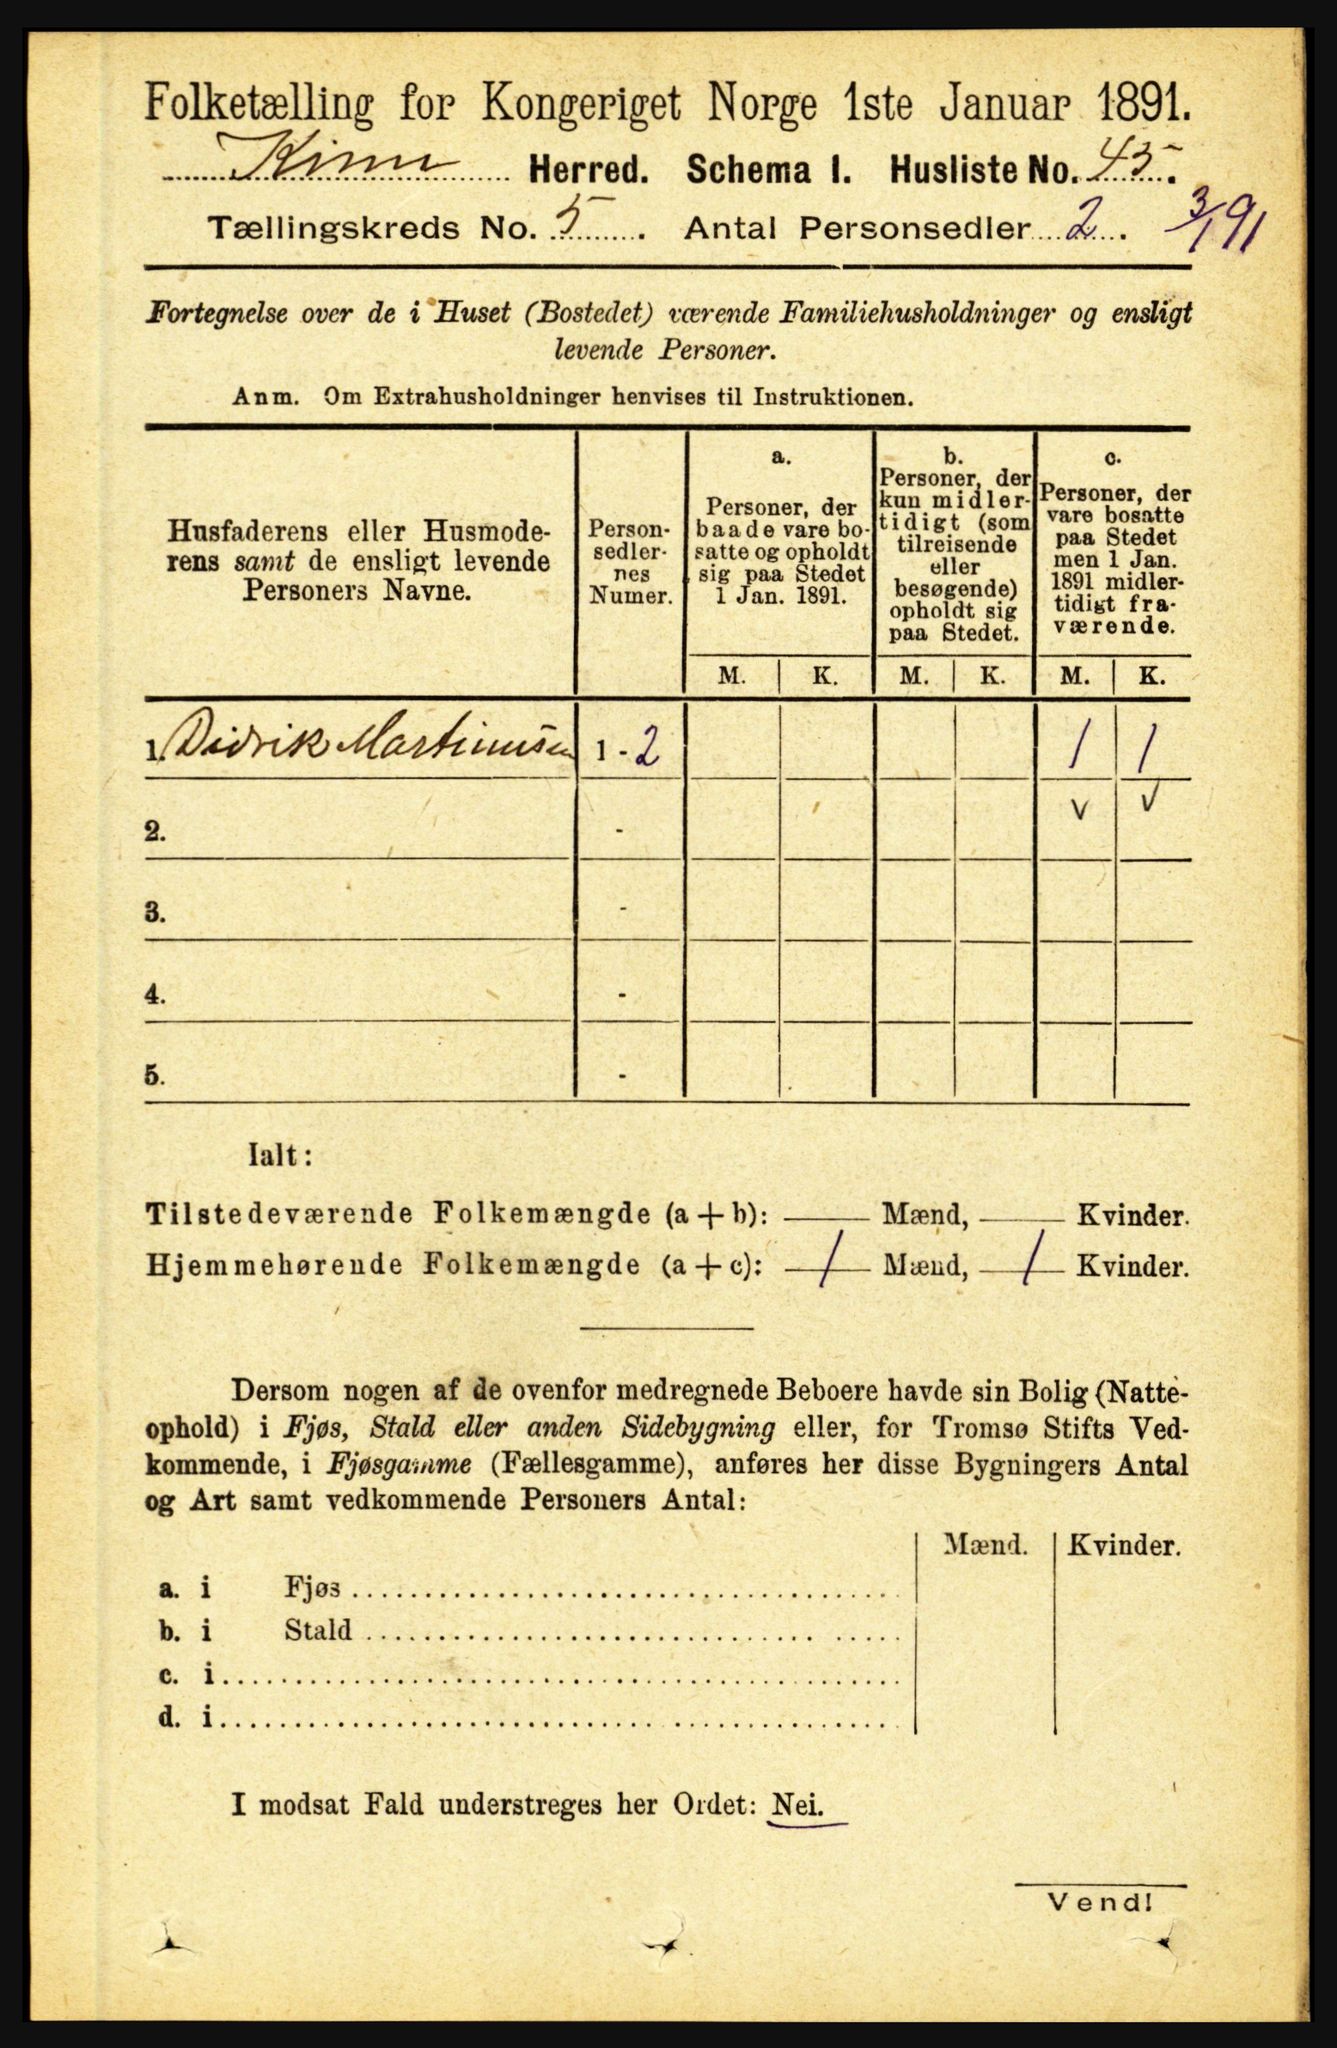 Folketælling for Kongeriget Norge 1ste Januar 1891.
Kinn Herred. Schema 1. Husliste No. 45.
Tællingskreds No. 5. Antal Personsedler 2. 3/1 91
Fortegnelse over de i Huset (Bostedet) værende Familiehusholdninger og ensligt
levende Personer.
Anm. Om Extrahusholdninger henvises til Instruktionen.
Husfaderens eller Husmode-
rens samt de ensligt levende
Personers Navne.
Person-
sedler-
nes
Numer.
a.
Personer, der
baade vare bo-
satte og opholdt
sig paa Stedet
1 Jan. 1891.
b.
Personer, der
kun midler-
tidigt (som
tilreisende
eller
besøgende)
opholdt sig
paa Stedet.
c.
Personer, der
vare bosatte
paa Stedet
men 1 Jan.
1891 midler-
tidigt fra-
værende.
M. K. M. K. M. K.
1. Didrik Martinusen 1 - 2 1 1
v v
2. -
3. -
4. -
5. -
Ialt:
Tilstedeværende Folkemængde (a + b): — Mænd, — Kvinder.
Hjemmehørende Folkemængde (a + c): 1 Mænd, 1 Kvinder.
Dersom nogen af de ovenfor medregnede Beboere havde sin Bolig (Natte-
ophold) i Fjøs, Stald eller anden Sidebygning eller, for Tromsø Stifts Ved-
kommende, i Fjøsgamme (Fællesgamme), anføres her disse Bygningers Antal
og Art samt vedkommende Personers Antal:
Mænd. Kvinder.
a. i Fjøs
b. i Stald
c. i
d. i
I modsat Fald understreges her Ordet: Nei.
Vend!